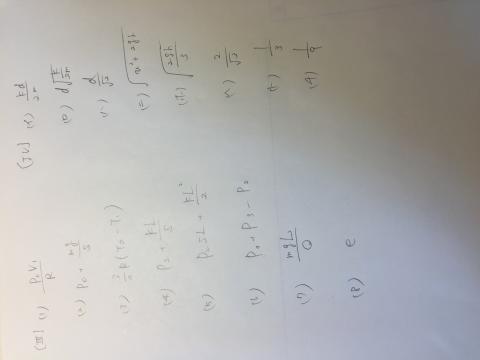 [III] (1) P₀V₁/R
(2) P₀ + mg/S
(3) 3/2 R(T₂ - T₁)
(4) P₂ + kL/S
(5) P₂SL + kL²/2
(6) P₁ + P₃ - P₂
(7) mgL/Q
(8) e
[IV] (イ) kd/2m
(ロ) d√(k/2m)
(ハ) d/√2
(ニ) √(v² + 2gh)
(ホ) √(2gh/3)
(ヘ) 2/√2
(ト) 1/3
(チ) 1/9